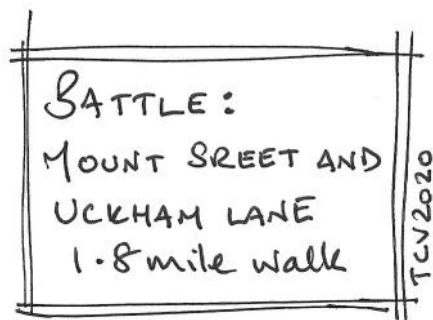 BATTLE:
MOUNT SREET AND
UCKHAM LANE
1.8 mile walk
TCV2020